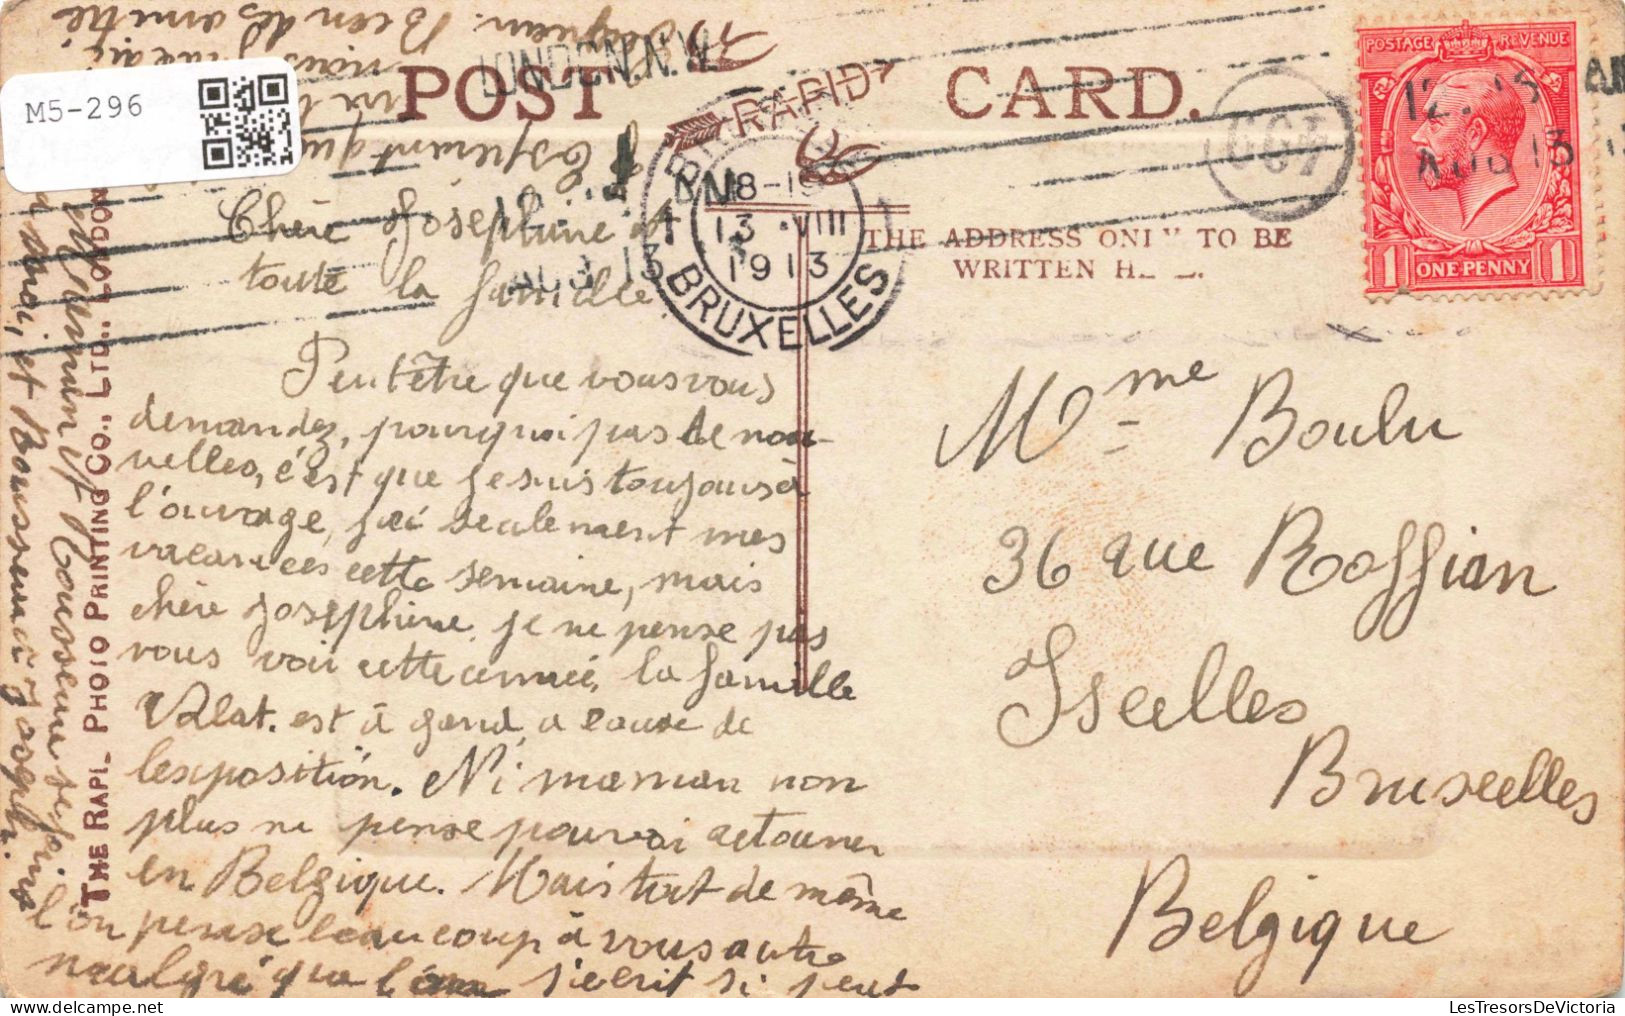 M5-296
POST
RAPID
CARD.
LONDON.N.W.
POSTAGE REVENUE
12.15 AM
AUG 13 13
ONE PENNY
1 1
18-19
13 VIII
1913
BRUXELLES
THE ADDRESS ONLY TO BE
WRITTEN HE
Chère Joséphine et
toute la famille
Peutêtre que vous vous
demandez, pourquoi pas de nou-
velles, c'est que je suis toujours à
l'ouvrage, j'ai seulement mes
vacances cette semaine, mais
chère Josephine, je ne pense pas
vous voir cette année, la famille
Valat. est à gand, a cause de
lexposition. Ni maman non
plus ne pense pouvoir retourner
en Belgique. Mais tout de même
l'on pense beaucoup à vous autre
malgré que l'on s'ecrit si peut
Esperant que
nous
Bien des amitié
de Maman et Rousseau se joins
a moi, et
THE RAPID PHOTO PRINTING CO., LTD., LONDON
Mme Boulu
36 rue Roffian
Ixelles
Bruxelles
Belgique
LesTresorsDeVictoria